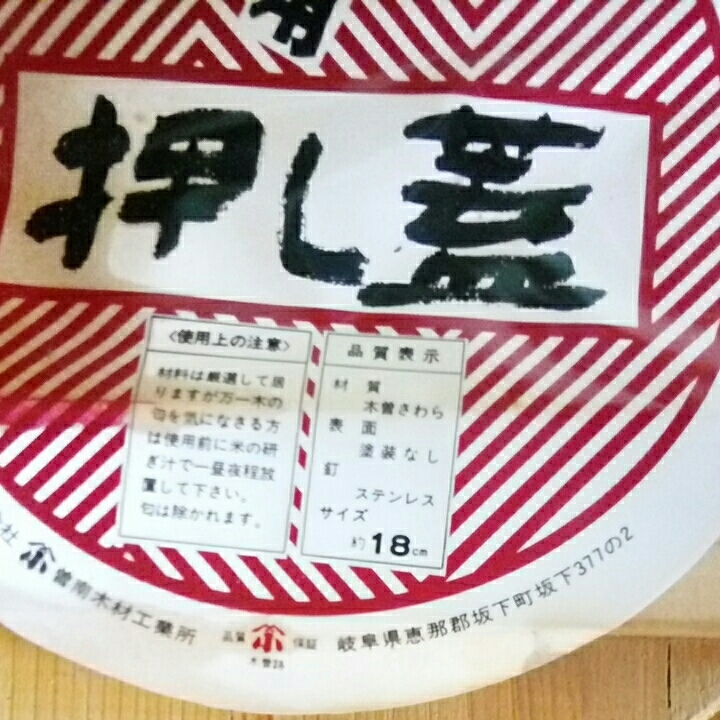 用
押し蓋
〈使用上の注意〉
材料は厳選して居
りますが万一木の
匂を気になさる方
は使用前に米の研
ぎ汁で一昼夜程放
置して下さい。
匂は除かれます。
品質表示
材質
木曽さわら
表面
塗装なし
釘
ステンレス
サイズ
約18cm
会社 曽南木材工業所
品質 保証
木曽路
岐阜県恵那郡坂下町坂下377の2